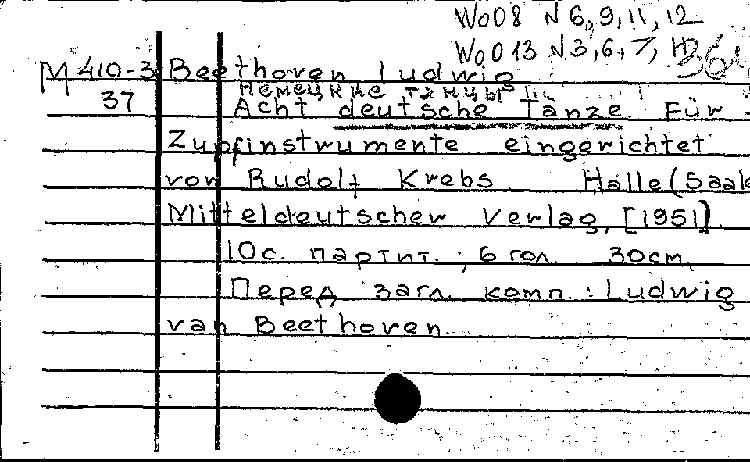 WoO8 N 6, 9, 11, 12
WoO13 N 3, 6, 7,
М 410-3 Beethoven Ludwig
Немецкие танцы
37 Acht deutsche Tänze Für
Zupfinstrumente eingerichtet
von Rudolf Krebs Halle (Saale
Mitteldeutscher Verlag, [1951]
10с. партит.; 6 гол. 30см
Перед загл. комп.: Ludwig
van Beethoven